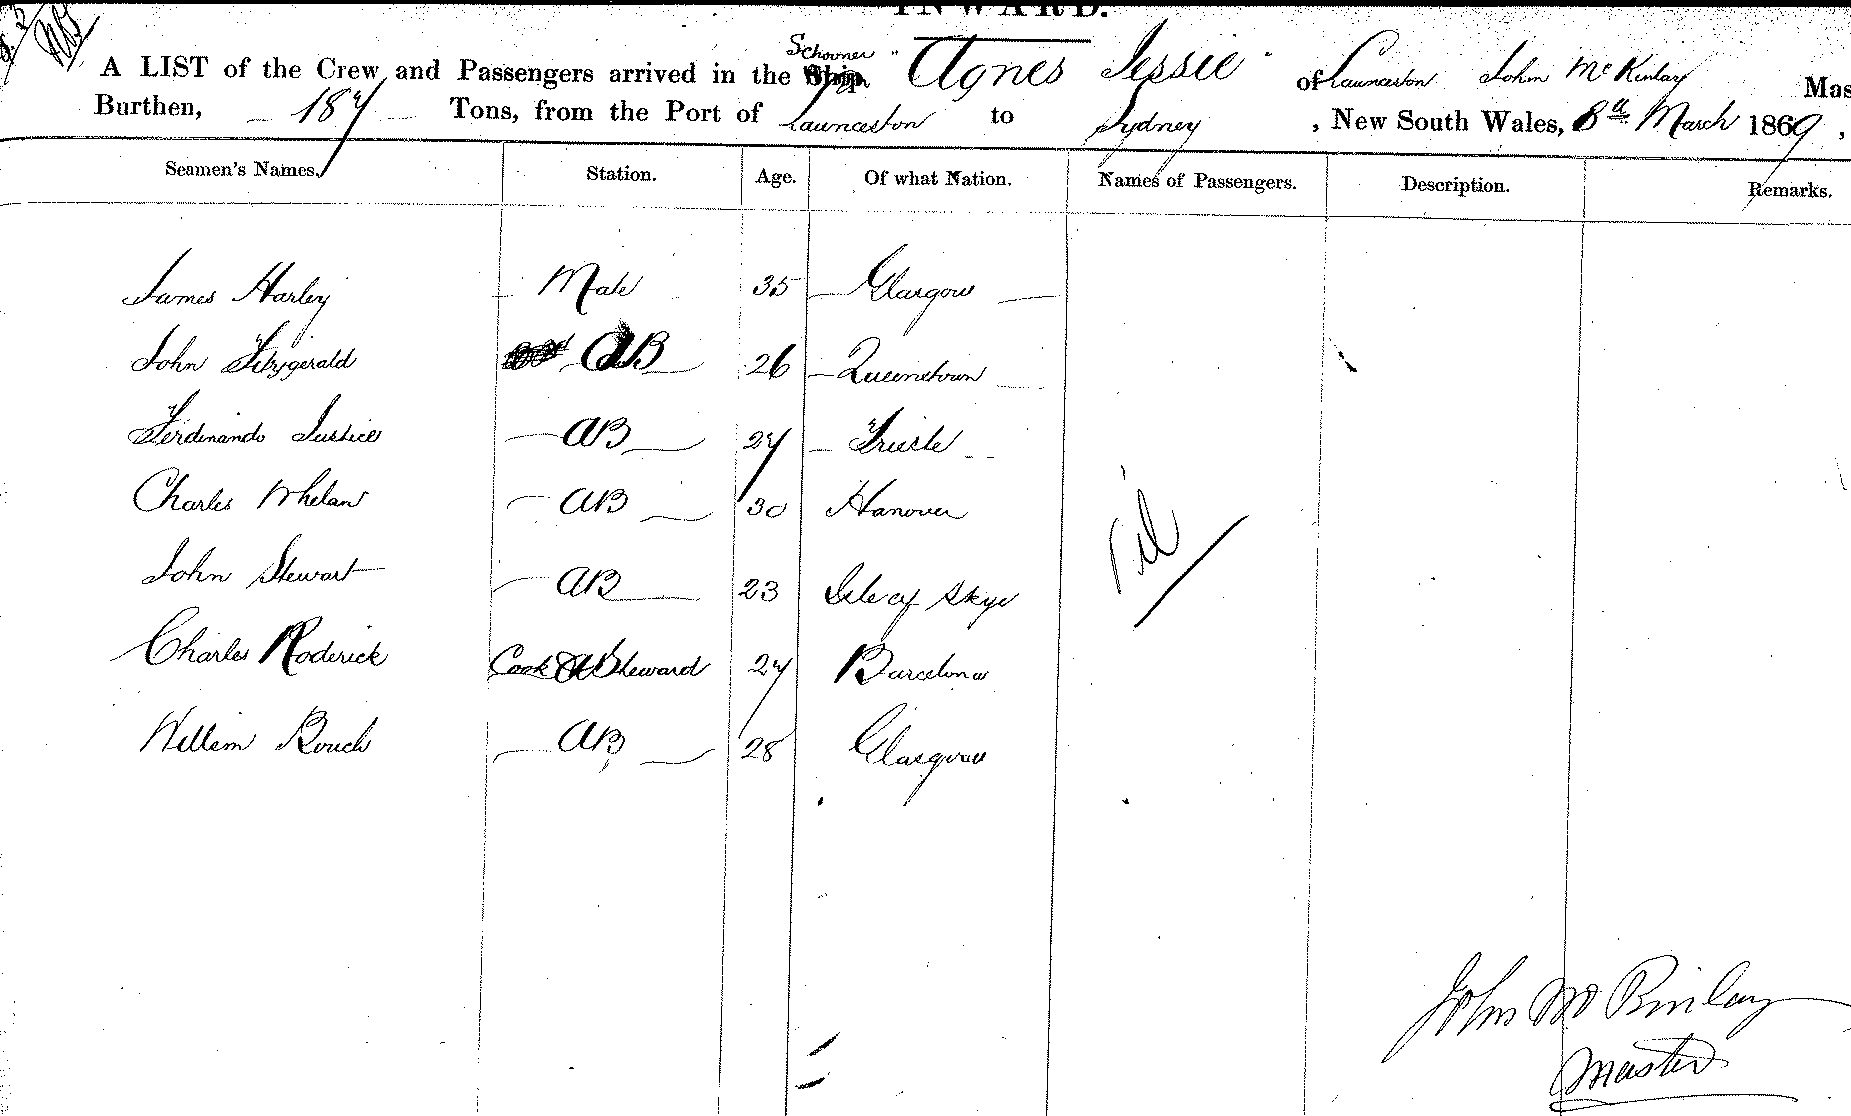 INWARD.
A LIST of the Crew and Passengers arrived in the Schooner "Agnes Jessie" of Launceston John McKinlay Mas
Burthen, 187 Tons, from the Port of Launceston to Sydney, New South Wales, 8th March 1869,
Seamen's Names. Station. Age. Of what Nation. Names of Passengers. Description. Remarks.
James Harley Mate 35 Glasgow
John Fitzgerald AB 26 Queenstown
Ferdinando Justice AB 27 Trieste
Charles Whelan AB 30 Hanover
Nil
John Stewart AB 23 Isle of Skye
Charles Roderick Cook & Steward 27 Barcelona
Willem Bouch AB 28 Glasgow
John McKinlay
Master